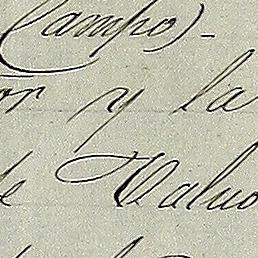 Campo)-
or y la
de Calvo